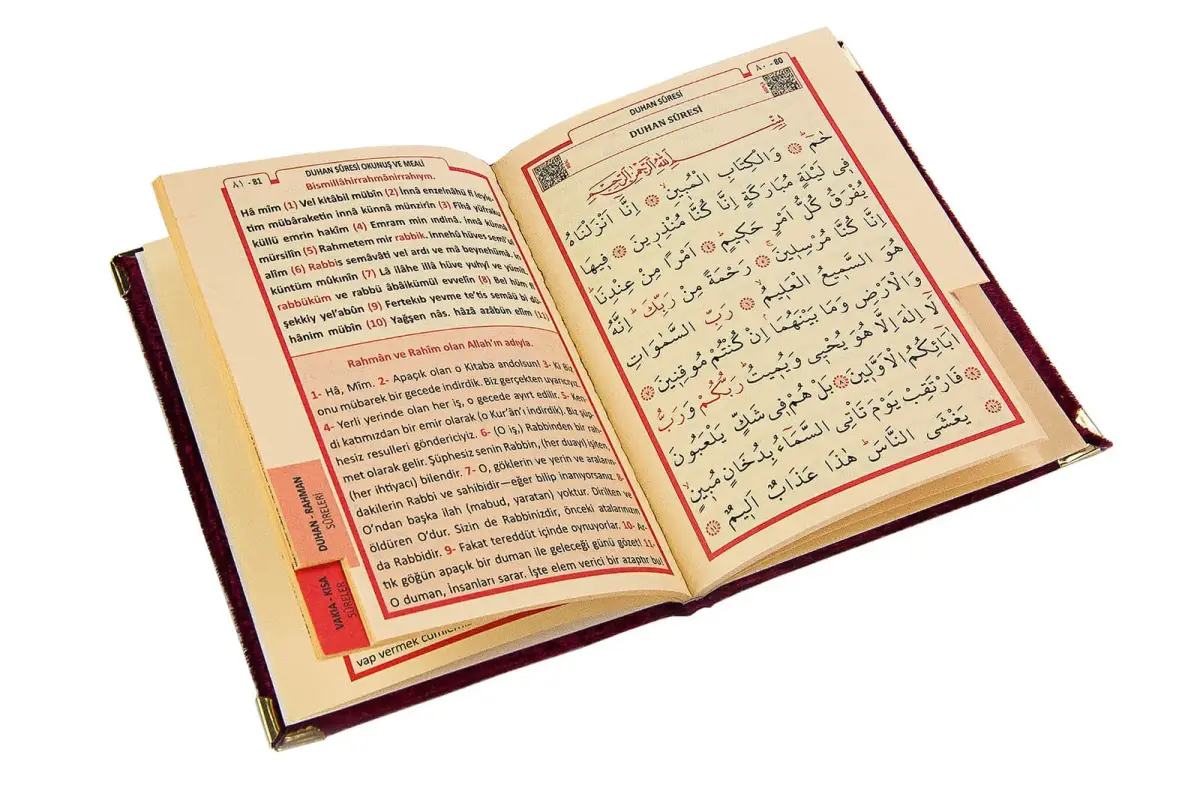 ٨٠ - 80
DUHAN SÛRESİ
DUHAN SÛRESİ
بِسْمِ اللّٰهِ الرَّحْمٰنِ الرَّحِيمِ
حٰمٓ وَالْكِتَابِ الْمُبِينِ اِنَّٓا اَنْزَلْنَاهُ
فِى لَيْلَةٍ مُبَارَكَةٍ اِنَّا كُنَّا مُنْذِرِينَ فِيهَا
يُفْرَقُ كُلُّ اَمْرٍ حَكِيمٍ اَمْرًا مِنْ عِنْدِنَا
اِنَّا كُنَّا مُرْسِلِينَ رَحْمَةً مِنْ رَبِّكَ اِنَّهُ
هُوَ السَّمِيعُ الْعَلِيمُ رَبِّ السَّمٰوَاتِ
وَالْاَرْضِ وَمَا بَيْنَهُمَا اِنْ كُنْتُمْ مُوقِنِينَ
لَٓا اِلٰهَ اِلَّا هُوَ يُحْيِى وَيُمِيتُ رَبُّكُمْ وَرَبُّ
اٰبَٓائِكُمُ الْاَوَّلِينَ بَلْ هُمْ فِى شَكٍّ يَلْعَبُونَ
فَارْتَقِبْ يَوْمَ تَأْتِى السَّمَٓاءُ بِدُخَانٍ مُبِينٍ
يَغْشَى النَّاسَ هٰذَا عَذَابٌ اَلِيمٌ
٨١ - 81
DUHAN SÛRESİ OKUNUŞ VE MEALİ
Bismillâhirrahmânirrahıym.
Hâ mîm (1) Vel kitâbil mübîn (2) İnnâ enzelnâhü fî leyle-
tim mübâraketin innâ künnâ münzirîn (3) Fîhâ yüfraku
küllü emrin hakîm (4) Emram min ındinâ. innâ künnâ
mürsilîn (5) Rahmetem mir rabbik. innehû hüves semî'ul
alîm (6) Rabbis semâvâti vel ardı ve mâ beynehümâ. in
küntüm mûkınîn (7) Lâ ilâhe illâ hüve yuhyî ve yümît.
rabbüküm ve rabbü âbâikümül evvelîn (8) Bel hüm fî
şekkiy yel'abûn (9) Fertekıb yevme te'tis semâü bi dü-
hânim mübîn (10) Yağşen nâs. hâzâ azâbün elîm (11)
Rahmân ve Rahîm olan Allah'ın adıyla.
1- Hâ, Mîm. 2- Apaçık olan o Kitaba andolsun! 3- Ki Biz
onu mübarek bir gecede indirdik. Biz gerçekten uyarıcıyız.
4- Yerli yerinde olan her iş, o gecede ayırt edilir. 5- Ken-
di katımızdan bir emir olarak (o Kur'ân'ı indirdik). Biz, şüp-
hesiz resulleri göndericiyiz. 6- (O iş,) Rabbinden bir rah-
met olarak gelir. Şüphesiz senin Rabbin, (her duayı) işiten
(her ihtiyacı) bilendir. 7- O, göklerin ve yerin ve araların-
dakilerin Rabbi ve sahibidir—eğer bilip inanıyorsanız. 8-
O'ndan başka ilah (mabud, yaratan) yoktur. Dirilten ve
öldüren O'dur. Sizin de Rabbinizdir, önceki atalarınızın
da Rabbidir. 9- Fakat tereddüt içinde oynuyorlar. 10- Ar-
tık göğün apaçık bir duman ile geleceği günü gözet! 11-
O duman, insanları sarar. İşte elem verici bir azaptır bu!
DUHAN - RAHMAN
SÛRELERİ
VAKIA - KISA
SÛRELER
vap vermek